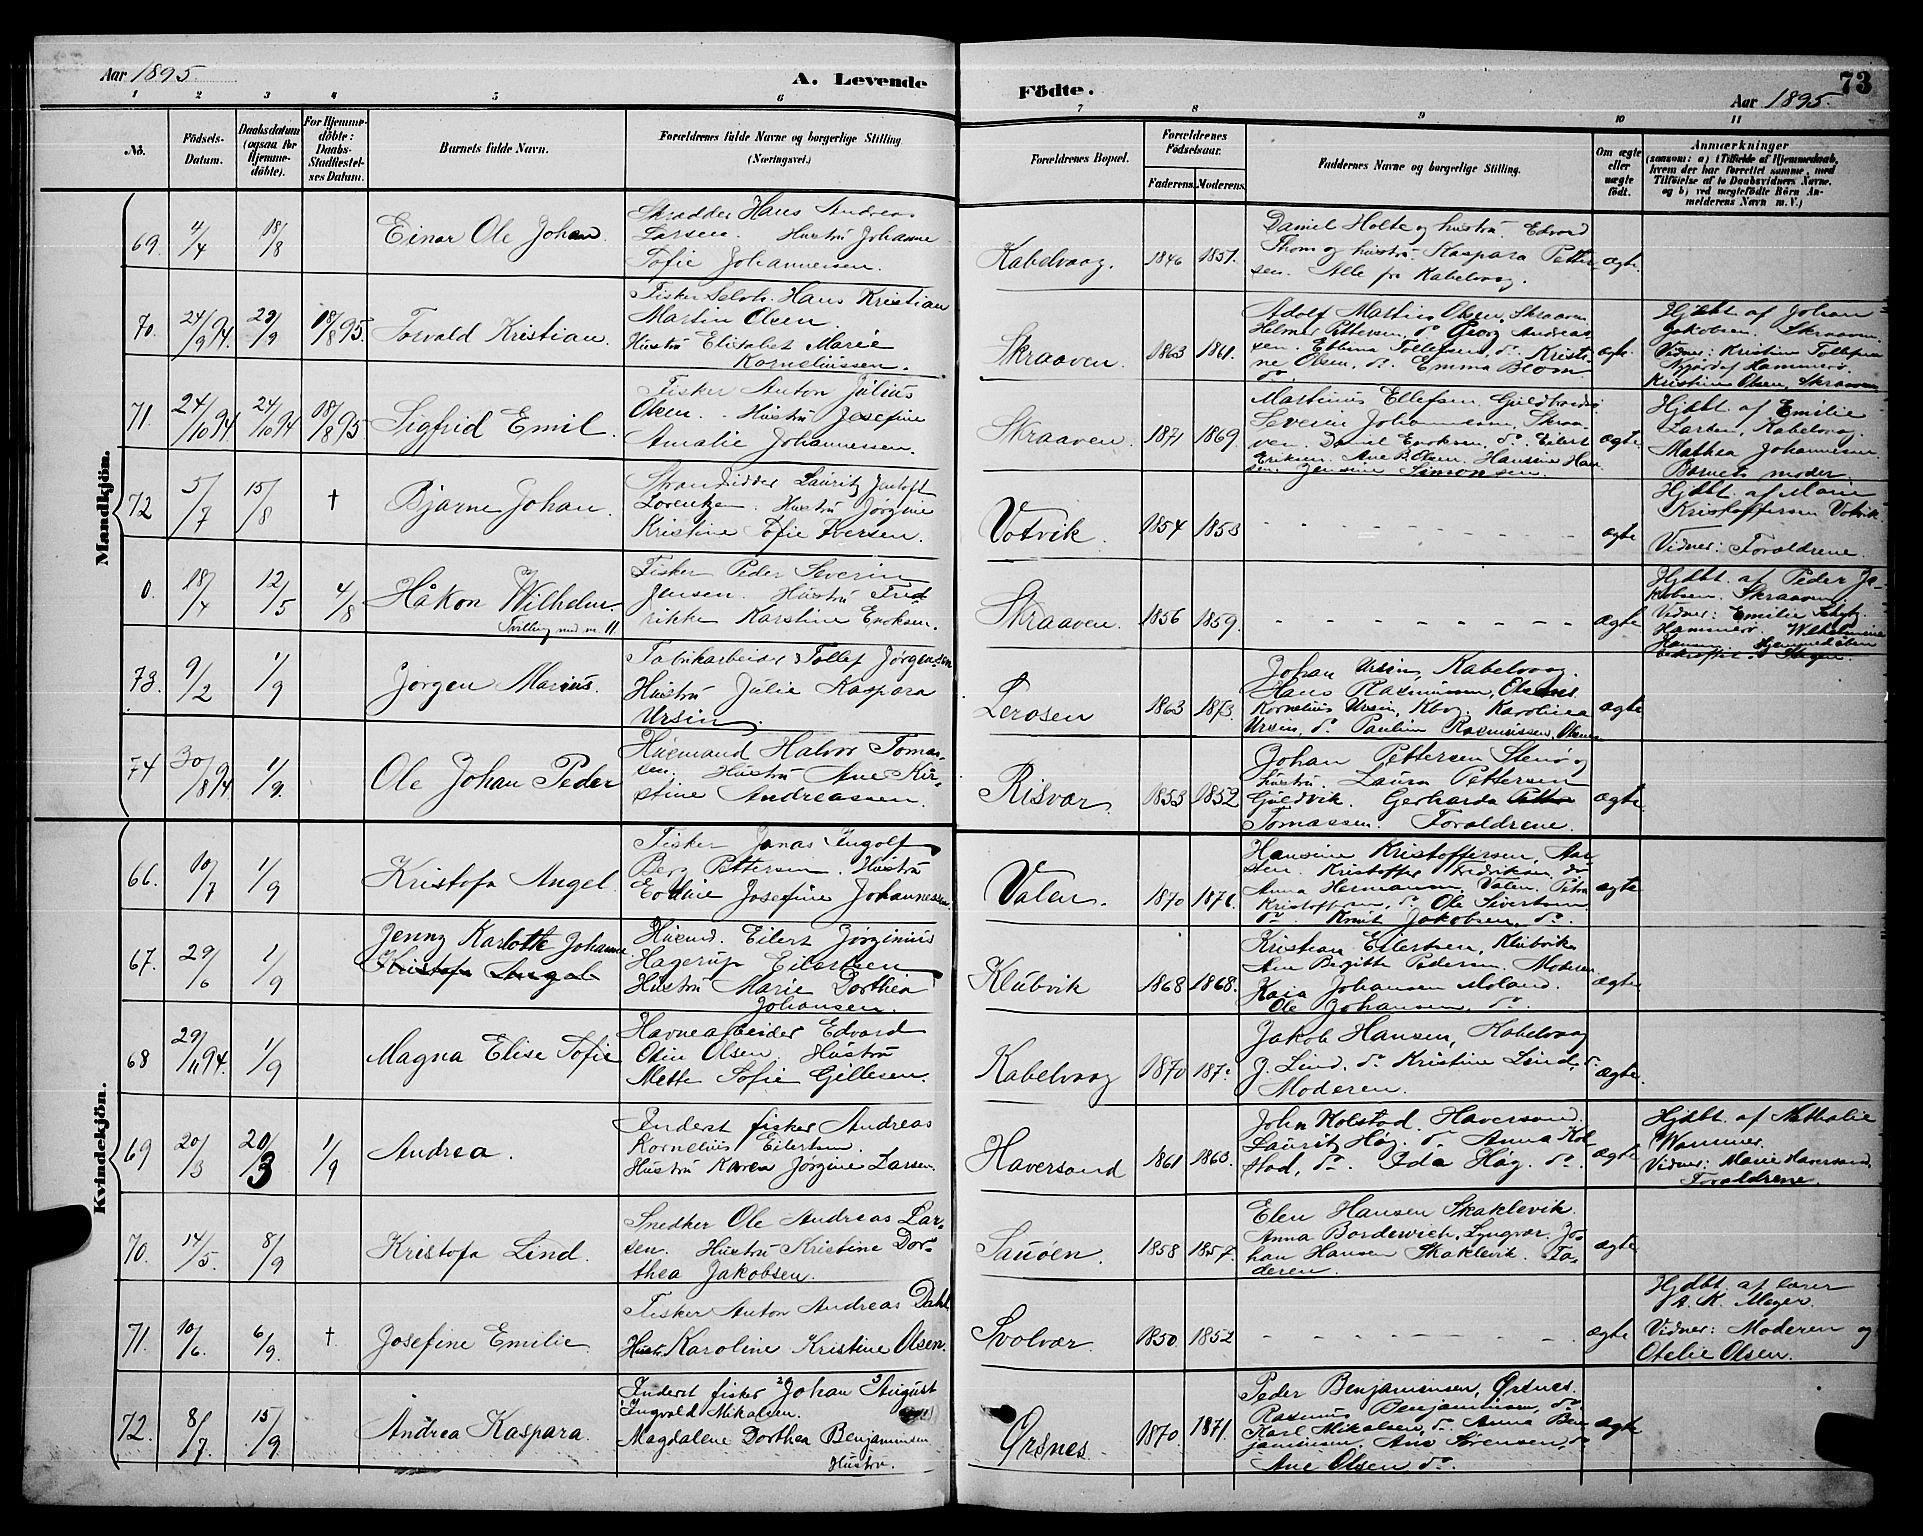 Aar 1895.
A. Levende
Födte.
73
Aar 1895.
1 2 3 4 5 6 7 8 9 10 11
No.
Födsels-
Datum.
Daabsdatum
(ogsaa for
Hjemme-
döbte).
For Hjemme-
döbte:
Daabs-
Stadfestel-
ses Datum.
Barnets fulde Navn.
Forældrenes fulde Navne og borgerlige Stilling
(Næringsvei.)
Forældrenes Bopæl.
Forældrenes
Födselsaar.
Faderens. Moderens.
Faddernes Navne og borgerlige Stilling.
Om ægte
eller
uægte
födt.
Anmærkninger
(saasom: a) i Tilfælde af Hjemmedaab,
hvem der har forrettet samme, med
Tilföielse af to Daabsvidners Navne,
og b) ved uægtefödte Börn An-
melderens Navn m. V.)
Mandkjön.
69. 11/4 18/8 Einar Ole Johan
Skrædder Hans Andreas
Larsen. Hustru Johanne
Sofie Johannessen.
Kabelvaag. 1846 1851.
Daniel Holte og hustru. Edvard
Thom og hustru. Kaspara Petter-
sen. Alle fra Kabelvaag.
ægte
70. 24/9 94. 29/9 18/8 95. Torvald Kristian.
Fisker Selvst. Hans Kristian
Martin Olsen.
Hustru Elisabet Marie
Korneliussen.
Skraaven 1863 1861.
Adolf Martins Olsen, Skraaven
Helmer Pettersen, do Georg Andreas-
sen. Tollefsen, do. Kristi-
ne Olsen, do. Emma Blom
do.
ægte
Hjdbt. af Johan
Jakobsen. Skraaven
Vidner: Kristine Tollefsen
Hammerö.
Kristine Olsen, Skraaven
71. 24/10 94 24/10 94 18/8 95 Sigfrid Emil.
Fisker Anton Julius
Olsen. Hustru Josefine
Amalie Johannessen.
Skraaven. 1871 1869.
Martinus Ellefsen
Severin Johannessen, Skraa-
ven. Daniel Enoksen, do. Eilert
Eriksen. Ane B. Olsen. Hansine Han-
sen. Jensine Simonsen.
ægte
Hjdbt. af Emilie
Larsen, Kabelvaag.
Mathea Johannessen
Barnets moder.
72 5/7 15/8 † Bjarne Johan.
Strandsidder Lauritz Jentoft
Lorentzen. Hustru Jörgine
Kristine Sofie Iversen.
Votvik. 1854 1853
ægte
Hjdbt. af Marie
Kristoffersen Votvik
Vidner: Forældrene.
0. 18/4 12/5 4/8 Håkon Wilhelm.
Tvilling med no. 11.
Fisker Peder Severin
Jensen. Hustru Fred-
rikke Karstine Enoksen.
Skraaven 1856 1859.
ægte
Hjdbt. af Peder Ja-
kobsen. Skraaven
Vidner: Emilie
Hammerö. Wilhelmine
Hansen. Hjemmedaaben
73. 9/2 1/9 Jörgen Marius.
Fabrikarbeider Tollef Jörgensen
Hustru Julie Kaspara
Ursin.
Lerosen 1863 1873.
Johan Ursin, Kabelvaag.
Hans Rasmussen,
Kornelius Ursin, Kbvg. Karoline
Ursin, do. Pauline Rasmussen,
ægte
74 30/8 94. 1/9. Ole Johan Peder
Husmand Halvor Tomas-
sen. Hustru Ane Kir-
stine Andreassen.
Risvær. 1853 1852
Johan Pettersen Stenö og
hustru. Laura Pettersen
Guldvik. Gerharda Petter
Tomassen. Forældrene.
ægte.
Kvindekjön.
66. 10/7 1/9 Kristofa Angel.
Fisker Jonas Ingolf
Berg Pettersen. Hustru
Josefine Johannessen.
Valen. 1870 1876.
Hansine Kristoffersen,
sten. Kristoffer Fredriksen, do
Anna Hermansen, Valen. Petra
Kristoffersen, do Ole Sivertsen
do. Knut Jakobsen, do.
ægte
67. 29/6 1/9 Jenny Karlotte Johanne
Kristofa Angel
Husmd. Eilert Jörginius
Hagerup Eilertsen
Hustru Marie Dorthea
Johansen.
Klubvik 1868 1868.
Kristian Eilertsen, Klubvik
Ane Birgitte Pedersen. Moderen
Kaia Johansen Moland.
Ole Johansen, do.
ægte
68 29/11 94. 1/9 Magna Elise Sofie
Havnearbeider Edvard
Odin Olsen. Hustru
Mette Sofie Gillesen.
Kabelvaag 1870
Jakob Hansen, Kabelvaag
J. Lind, do Kristine Lind, do.
Moderen.
ægte.
69 20/3 20/3 1/9 Andrea.
Inderst fisker Andreas
Kornelius Eilertsen
Hustru Karen Jörgine Larsen.
Haversand 1861 1863.
John Kolstad, Haversand
Lauritz Høg. do. Anna Kol-
stad, do. Ida Høg. do.
ægte
Hjdbt. af Nathalie
Wammer.
Vidner: Marie Haversand
Forældrene.
70. 14/5. 8/9 Kristofa Lind.
Snedker Ole Andreas Lar-
sen. Hustru Kristine Dor-
thea Jakobsen.
Sauöen. 1858 1857.
Elen Hansen Skaklevik.
Anna Bordewich, Lyngvær. Jo-
han Hansen Skaklevik. Fa-
deren.
ægte
71. 10/6. 6/9. †. Josefine Emilie
Fisker Anton Andreas Dahl.
Hustr. Karoline Kristine Olsen.
Svolvær 1850. 1852
ægte
Hjdbt. af lærer
A. K. Meyer.
Vidner: Moderen og
Otelie Olsen.
72. 8/7. 15/9. Andrea Kaspara.
Inderst fisker Johan August
Ingvald Mikalsen.
Magdalene Dorthea Benjaminsen
Hustru.
Örsnes. 1870. 1871.
Peder Benjaminsen, Örsnes.
Rasmus Benjaminsen, do
Karl Mikalsen, do. Anna Ben-
jaminsen, Ane Sørensen, do
Ane Olsen, do.
ægte